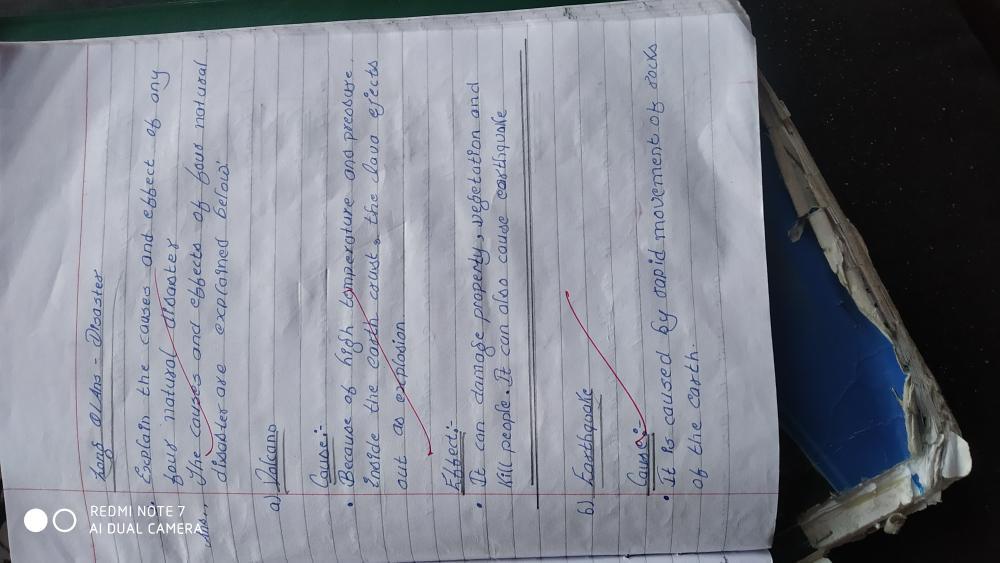 Long Q/Ans - Disaster
. Explain the causes and effect of any
four natural disaster
Ans., The causes and effects of four natural
disaster are explained below:
a) Volcano
Cause:-
• Because of high temperature and pressure
inside the earth crust, the lava ejects
out as explosion.
Effect:-
• It can damage property, vegetation and
kill people. It can also cause earthquake
b) Earthquake
Cause:-
• It is caused by rapid movement of rocks
of the earth.
REDMI NOTE 7
AI DUAL CAMERA